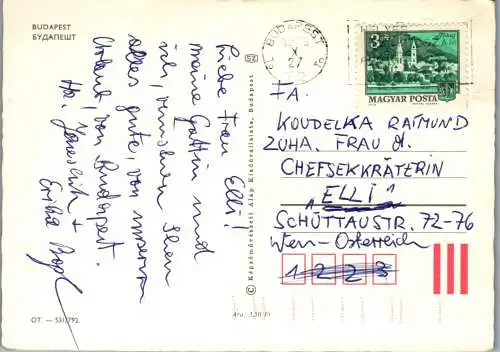 BUDAPEST
БУДАПЕШТ
Liebe Frau Elli!
Meine Gattin und
ich, wünschen Ihnen
alles gute, von unserem
Urlaub, von Budapest.
Hr. +
Erika
OT. — 531/792.
© Képzőművészeti Alap Kiadóvállalata, Budapest
Ára: 1,20 Ft
BUDAPEST
X
27
3 Ft
MAGYAR POSTA
FA.
KOUDELKA RAIMUND
ZUHA. FRAU d.
CHEFSEKKRÄTERIN
"ELLI"
SCHÜTTAUSTR. 72-76
Wien-Österreich
1223